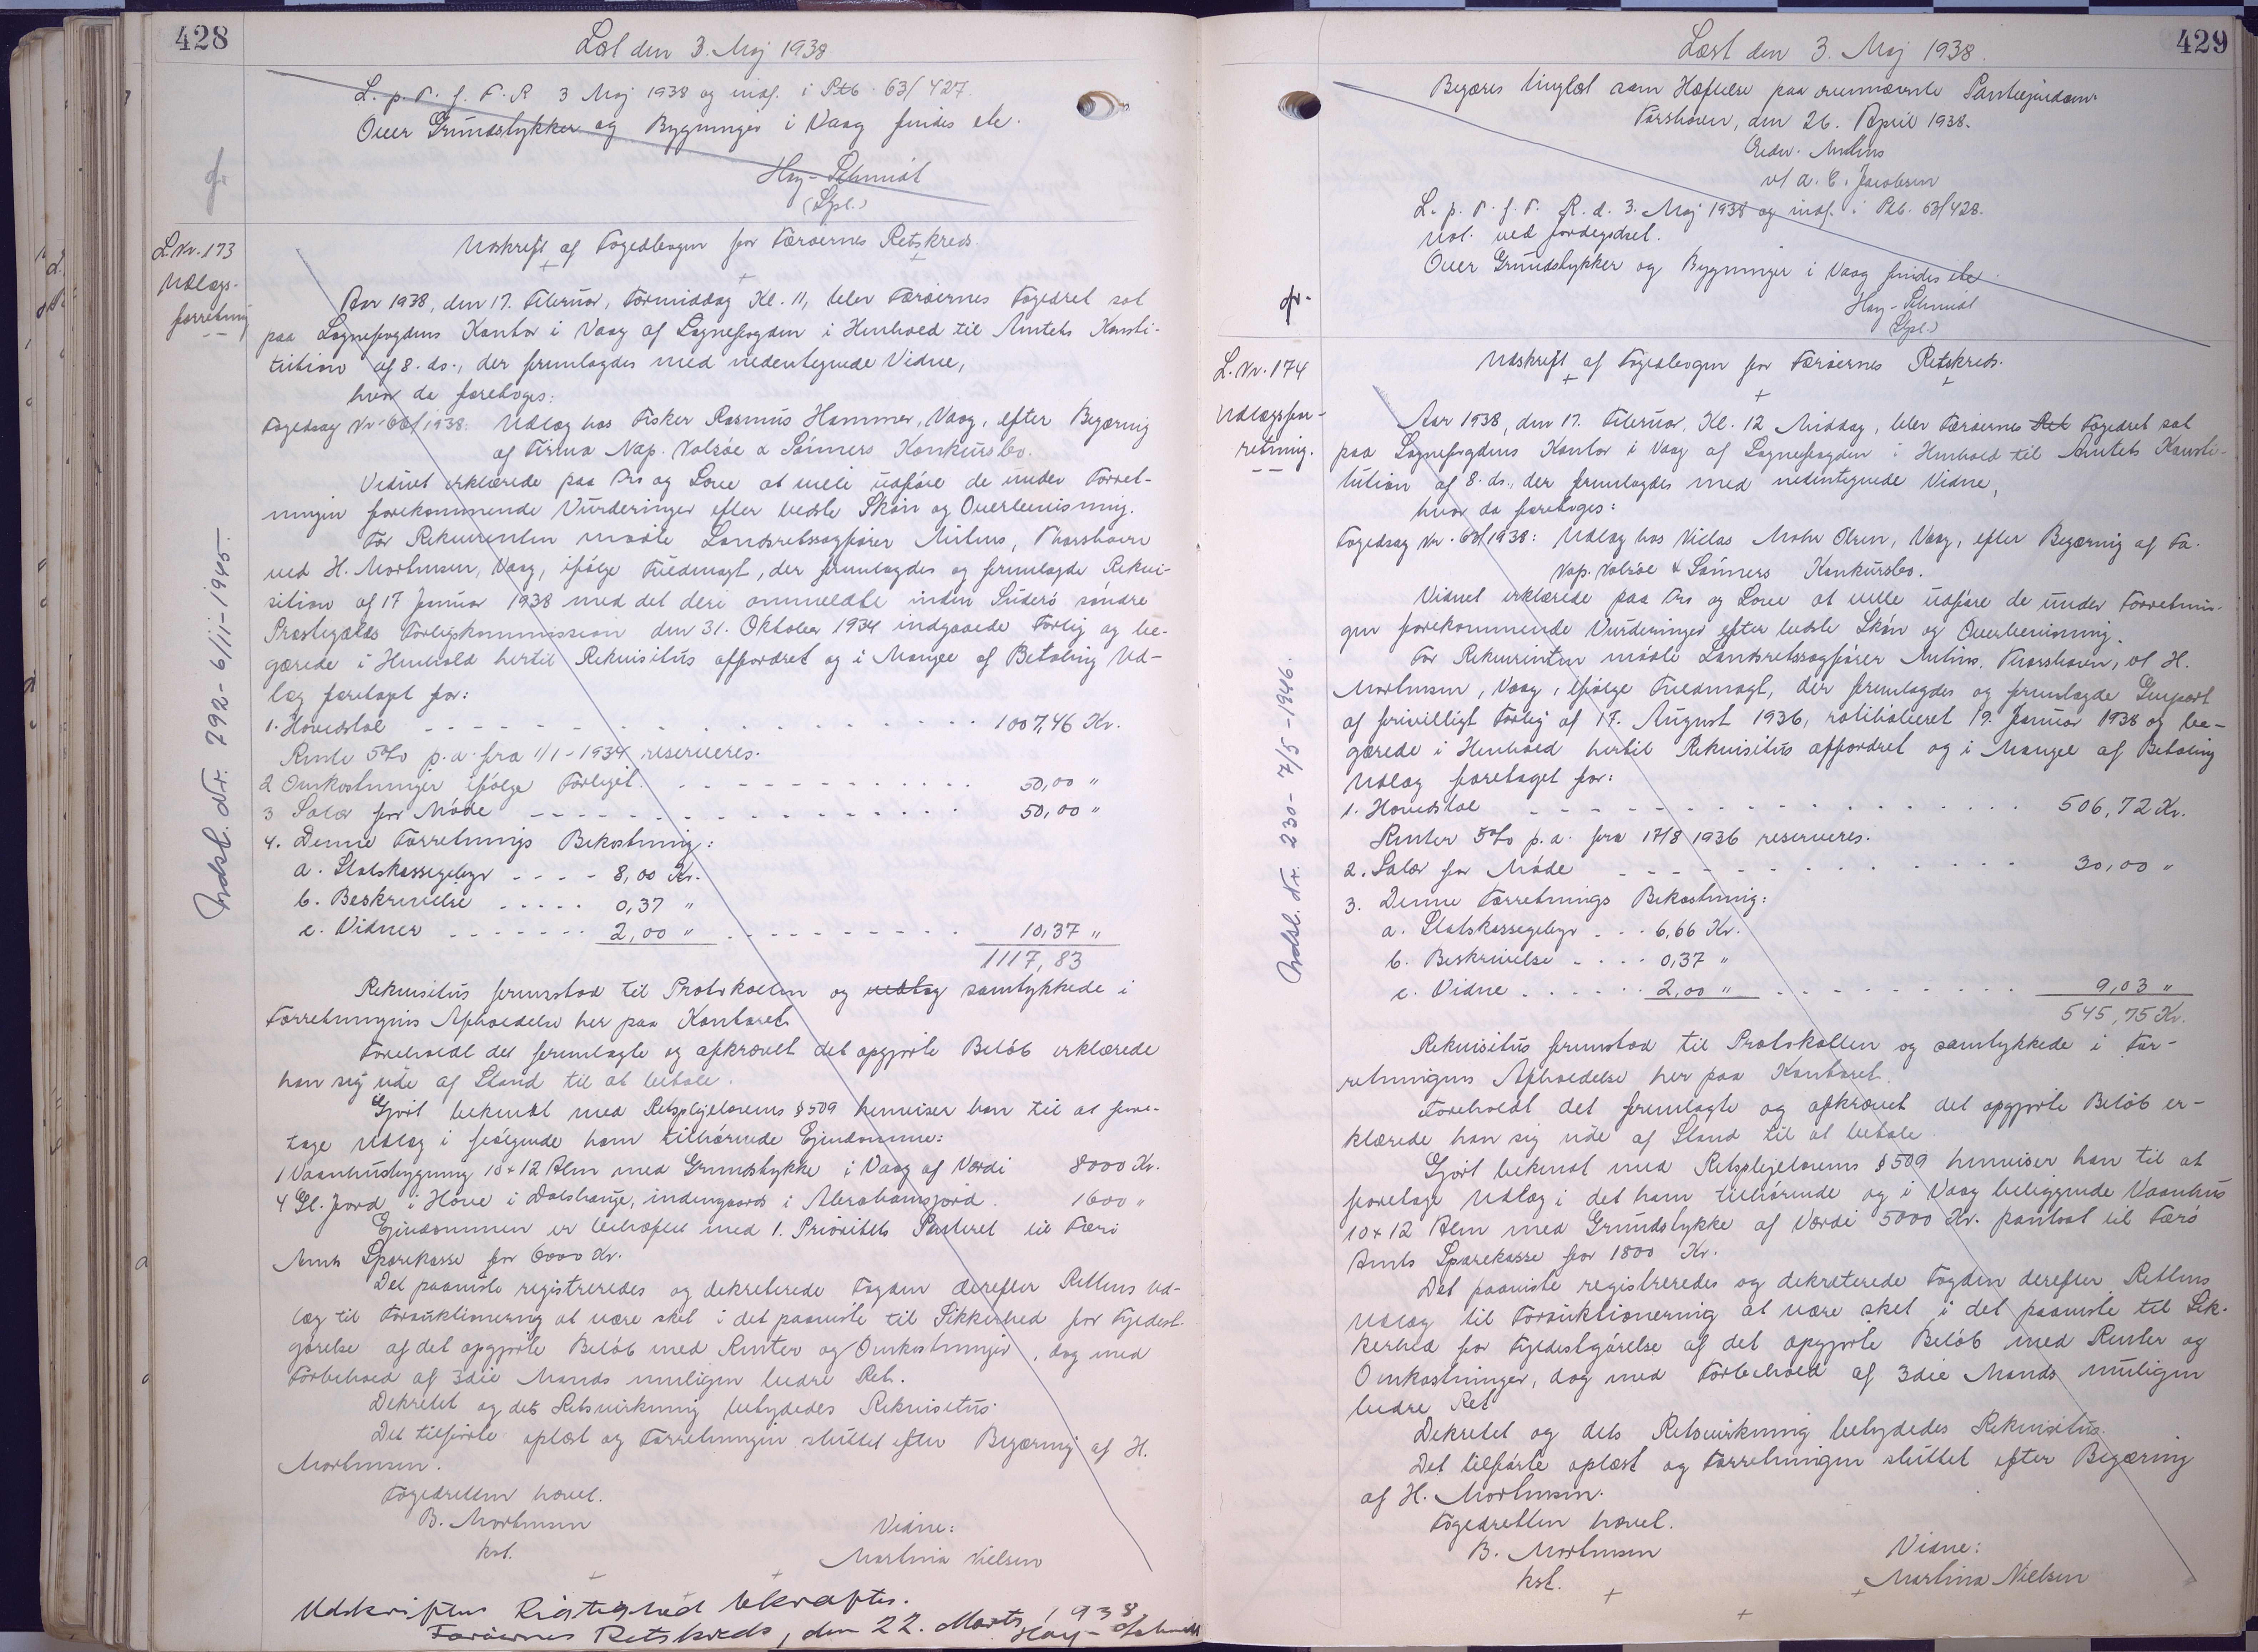 428
Læst den 3. Maj 1938
L. p. T. f. F. R 3 Maj 1938 og indf. i Ptb. 63/427
Over Grundstykker og Bygninger i Vaag findes ele.
Hay-Schmidt
(Spl.)
L. Nr. 173
Udlægs-
forretning
Udskrift af Fogedbogen for Færøernes Retskreds.
Aar 1938, den 17. Februar, Formiddag Kl. 11, blev Færøernes Fogedret sat
paa Sognefogdens Kontor i Vaag af Sognefogden i Henhold til Amtets Konsti-
tution af 8. ds., der fremlagdes med nedentegnede Vidne,
hvor da foretoges:
Fogedsag Nr. /1938. Udlæg hos Fisker Rasmus Hammer, Vaag, efter Begæring
af Firma Nap. Valsøe & Sønners Konkursbo.
Vidnet erklærede paa Tro og Love at ville udføre de under Forret-
ningen forekommende Vurderinger efter bedste Skøn og Overbevisning.
For Rekvirenten mødte Landsretssagfører Mitens, Thorshavn
ved H. Mortensen, Vaag, ifølge Fuldmagt, der fremlagdes og fremlagde Rekvi-
sition af 17 Januar 1938 med det deri ommeldte inden Suderø søndre
Præstegælds Forligskommission den 31. Oktober 1934 indgaaede Forlig og be-
gærede i Henhold hertil Rekvisitus affordret og i Mangel af Betaling Ud-
læg foretaget for:
1. Hovedstol - - - - - - - - - - 1007,46 Kr.
Rente 5% p.a. fra 1/1-1934 reserveres.
2 Omkostninger ifølge Forliget. - - - - - - - - 50,00 "
3 Salær for Møde - - - - - - - - - - 50,00 "
4. Denne Forretnings Bekostning:
a. Statskassegebyr - - - - 8,00 Kr.
b. Beskrivelse - - - - - 0,37 "
c. Vidner - - - - - - - 2,00 " - - - - - - - - 10,37 "
1117,83
Rekvisitus fremstod til Protokollen og samtykkede i
Forretningens Afholdelse her paa Kontoret.
Foreholdt det fremlagte og afkrævet det opgjorte Beløb erklærede
han sig ude af Stand til at betale.
Gjort bekendt med Retsplejelovens § 509 henviser han til at fore-
tage Udlæg i følgende ham tilhørende Ejendomme:
1 Vaaningshusbygning 10 x 12 Alen med Grundstykke i Vaag af Værdi 8000 Kr.
4 Gl. Jord i Hove i Dalshauge, indengaards i Abrahamsjord. 1600 "
Ejendommen er behæftet med 1. Prioritets Panteret til Færø
Amts Sparekasse for 6000 Kr.
Det paaviste registreredes og dekreterede Fogden derefter Rettens Ud-
læg til Forauktionering at være sket i det paaviste til Sikkerhed for Fyldest-
gørelse af det opgjorte Beløb med Renter og Omkostninger, dog med
Forbehold af 3die Mands muligen bedre Ret.
Dekretet og dets Retsvirkning betydedes Rekvisitus.
Det tilførte oplæst og Forretningen sluttet efter Begæring af H.
Mortensen.
Fogedretten hævet.
B. Mortensen
kst.
Vidne:
Martina Nielsen
Udskriftens Rigtighed bekræftes.
Færøernes Retskreds, den 22. Marts 1938
Hay-Schmidt
Indsl. Nr. 792- 6/11-1945-
429
Læst den 3. Maj 1938.
Begæres tinglæst som Hæftelse paa ovennævnte Panteejendom
Torshavn, den 26. April 1938.
Edw. Mitens
v/ A. C. Jacobsen
L. p. T. f. F. R. d. 3. Maj 1938 og indf. i Ptb. 63/428.
Not. ved fordegdsel.
Over Grundstykker og Bygninger i Vaag findes ele
Hay-Schmidt
(Spl.)
L. Nr. 174
Udlægsfor-
retning.
Udskrift af Fogedbogen for Færøernes Retskreds.
Aar 1938, den 17. Februar, Kl. 12 Middag, blev Færøernes Ret Fogedret sat
paa Sognefogdens Kontor i Vaag af Sognefogden i Henhold til Amtets Konsti-
tution af 8. ds., der fremlagdes med nedentegnede Vidne,
hvor da foretoges:
Fogedsag Nr. 63/1938: Udlæg hos Niclas Mohr Olsen, Vaag, efter Begæring af Fa.
Nap. Valsøe & Sønners Konkursbo.
Vidnet erklærede paa Tro og Love at ville udføre de under Forretnin-
gen forekommende Vurderinger efter bedste Skøn og Overbevisning.
For Rekvirenten mødte Landsretssagfører Mitens, Thorshavn, v/ H.
Mortensen, Vaag, ifølge Fuldmagt, der fremlagdes og fremlagde Genpart
af frivilligt Forlig af 17. August 1936, ratihaberet 19. Januar 1938 og be-
gærede i Henhold hertil Rekvisitus affordret og i Mangel af Betaling
Udlæg foretaget for:
1. Hovedstol - - - - - - - - - - 506,72 Kr.
Renter 5% p.a. fra 17/8 1936 reserveres.
2. Salær for Møde - - - - - - - - - 30,00 "
3. Denne Forretnings Bekostning:
a. Statskassegebyr - - - 6,66 Kr.
b. Beskrivelse - - - - 0,37 "
c. Vidne - - - - - - 2,00 " - - - - - - - - 9,03 "
545,75 Kr.
Rekvisitus fremstod til Protokollen og samtykkede i For-
retningens Afholdelse her paa Kontoret.
Foreholdt det fremlagte og afkrævet det opgjorte Beløb er-
klærede han sig ude af Stand til at betale.
Gjort bekendt med Retsplejelovens § 509 henviser han til at
foretage Udlæg i det ham tilhørende og i Vaag beliggende Vaanhus
10 x 12 Alen med Grundstykke af Værdi 5000 Kr. pantsat til Færø
Amts Sparekasse for 1800 Kr.
Det paaviste registreredes og dekreterede Fogden derefter Rettens
Udlæg til Forauktionering at være sket i det paaviste til Sik-
kerhed for Fyldestgørelse af det opgjorte Beløb med Renter og
Omkostninger, dog med Forbehold af 3die Mands muligen
bedre Ret
Dekretet og dets Retsvirkning betydedes Rekvisitus.
Det tilførte oplæst og Forretningen sluttet efter Begæring
af H. Mortensen.
Fogedretten hævet.
B. Mortensen
kst.
Vidne:
Martina Nielsen
Indsl. Nr. 230- 7/5-1946.